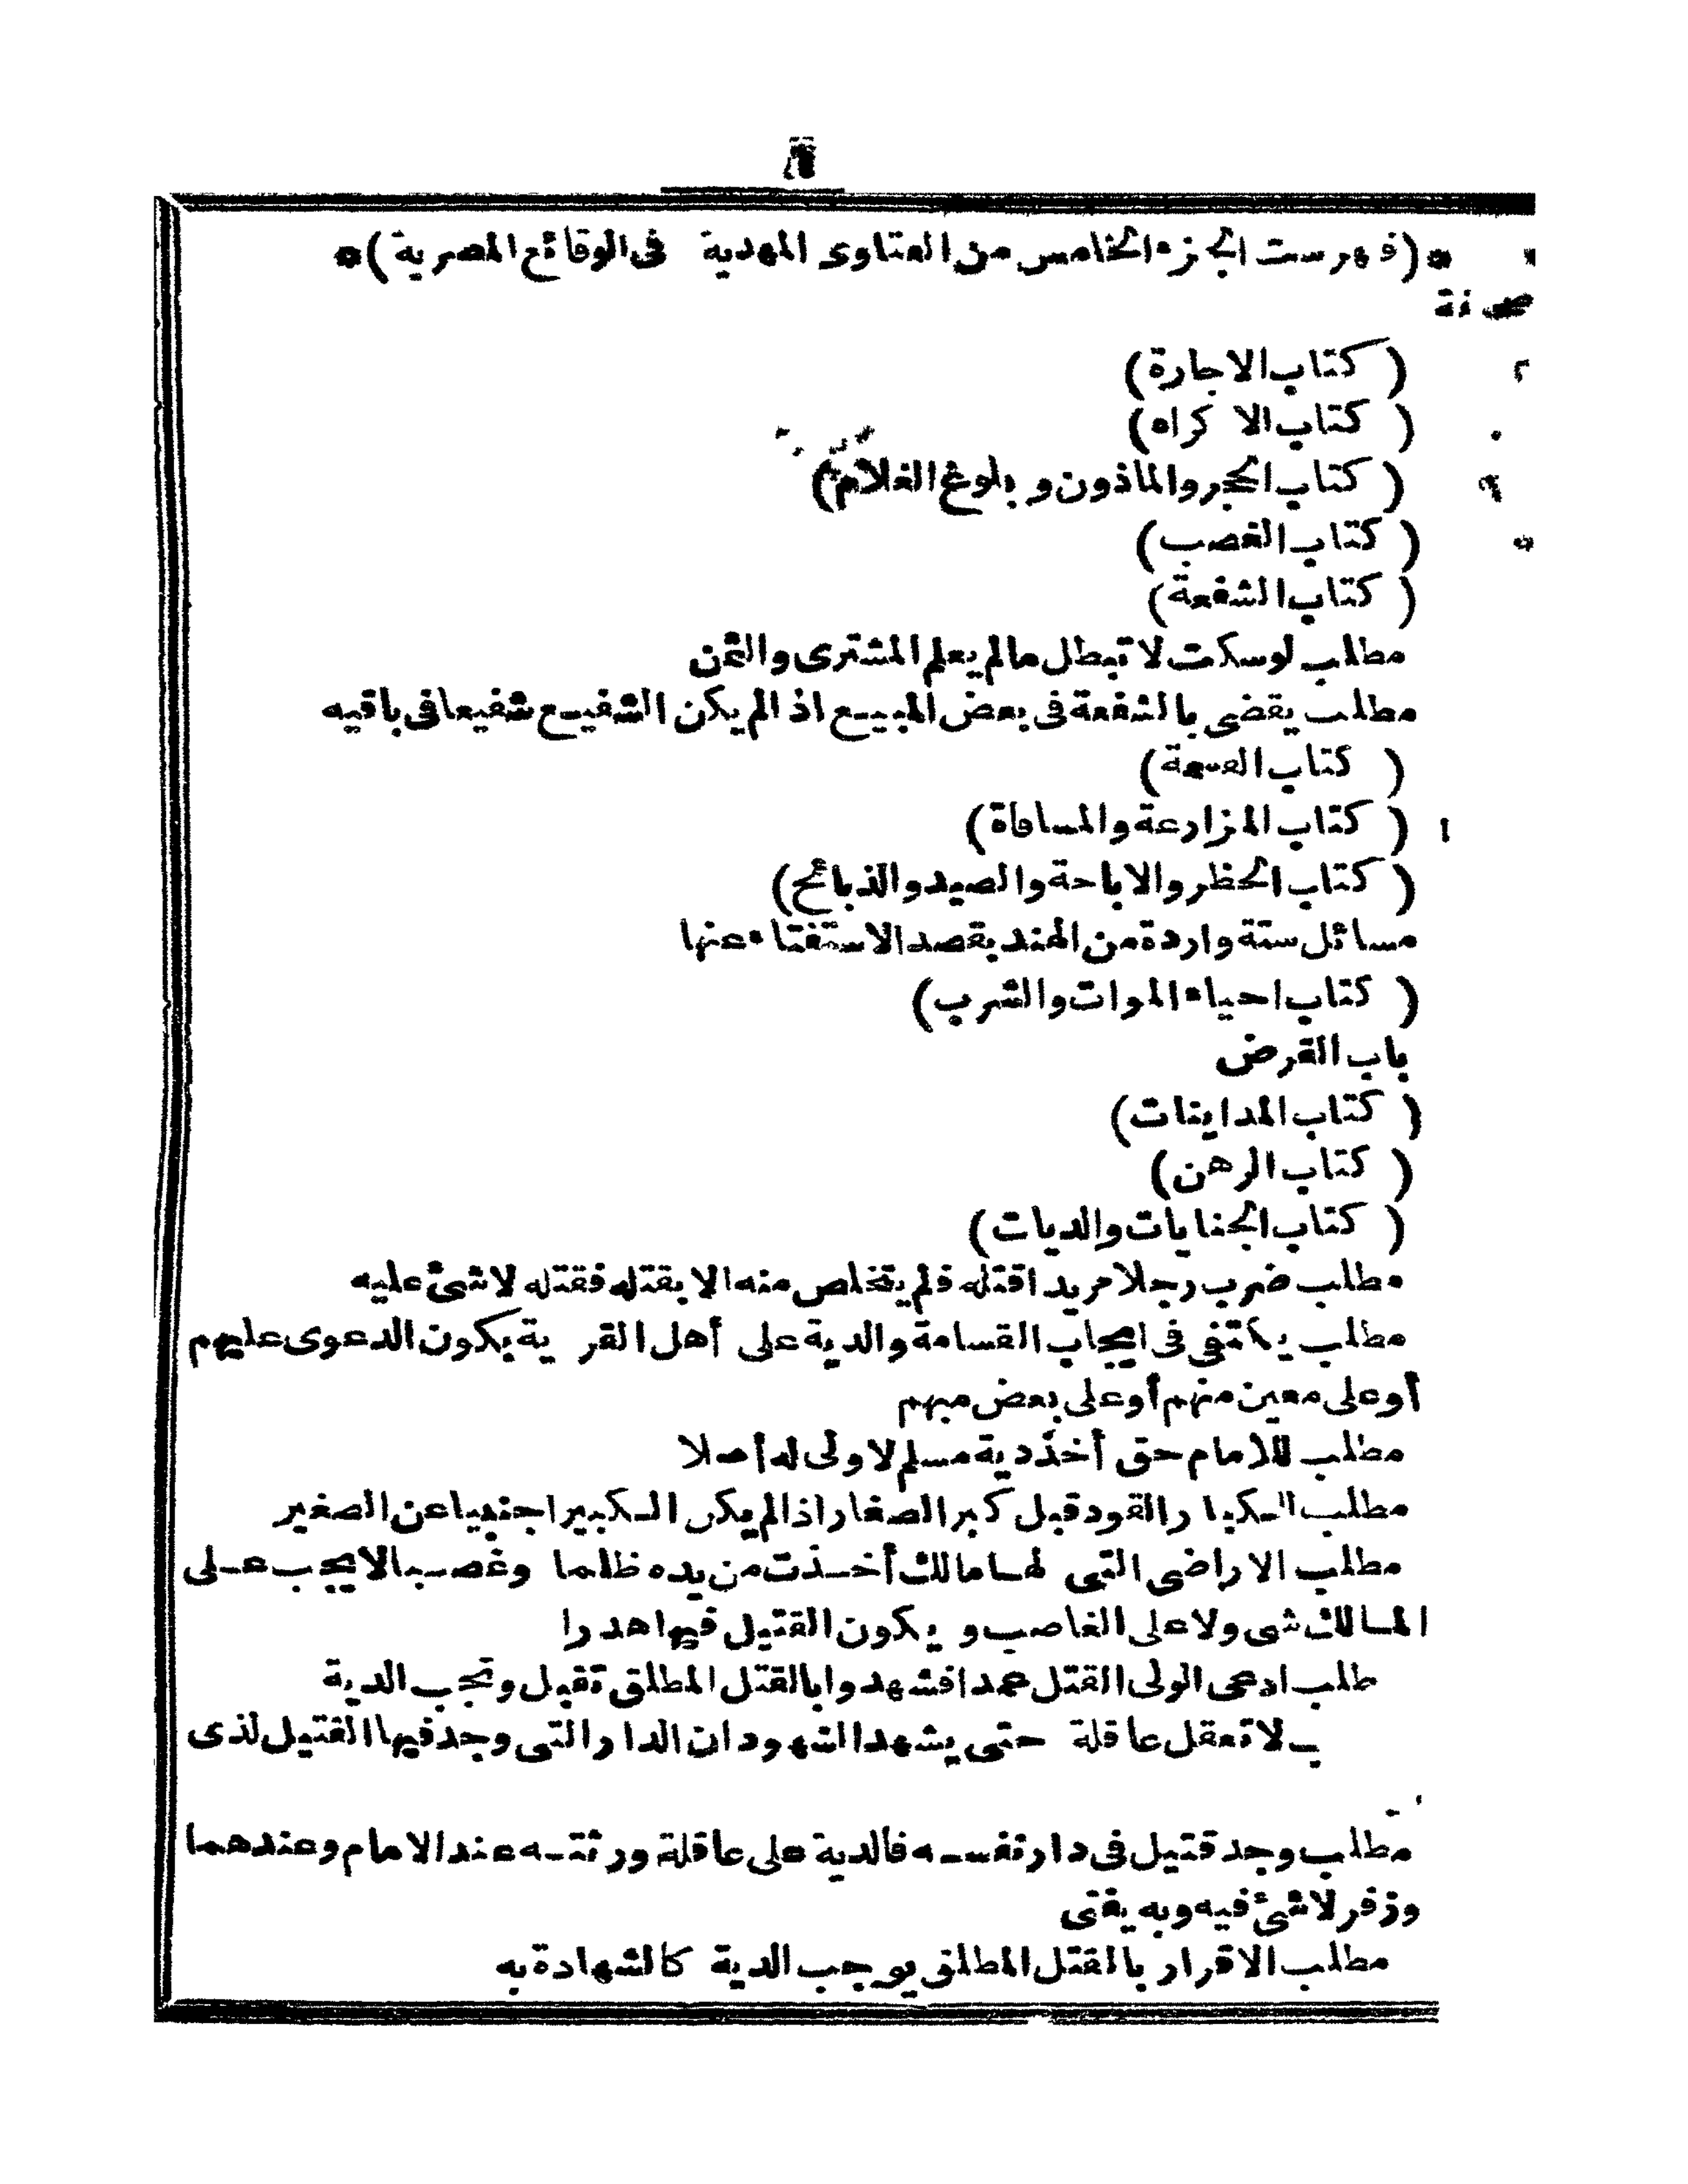 *(فهرست الجزء الخامس من الفتاوى المهدية في الوقائع المصرية)*
(كتاب الاجارة)
(كتاب الاكراه)
(كتاب الحجر والماذون وبلوغ الغلام)
(كتاب الغصب)
(كتاب الشفعة)
مطلب لو سكت لا تبطل مالم يعلم المشترى والثمن
مطلب يقضى بالشفعة فى بعض المبيع اذا لم يكن الشفيع شفيعا فى باقيه
(كتاب القسمة)
(كتاب المزارعة والمساقاة)
(كتاب الحظر والاباحة والصيد والذبائح)
مسائل ستة واردة من الهند بقصد الاستفتاء عنها
(كتاب احياء الموات والشرب)
باب القرض
(كتاب المداينات)
(كتاب الرهن)
(كتاب الجنايات والديات)
مطلب ضرب رجلا مريدا قتله فلم يتخلص منه الا بقتله فقتله لا شئ عليه
مطلب يكتفى فى ايجاب القسامة والدية على أهل القرية بكون الدعوى عليهم
أو على معين منهم أو على بعض مبهم
مطلب للامام حق أخذ دية مسلم لا ولى له أصلا
مطلب الكبار القود قبل كبر الصغار اذا لم يكن الكبير اجنبيا عن الصغير
مطلب الاراضى التى لها مالك أخذت من يده ظلما وغصبا لا يجب على
المالك شى ولا على الغاصب ويكون القتيل فيها هدرا
طلب ادعى الولى القتل عمدا فشهدوا بالقتل المطلق تقبل وتجب الدية
ب لا تعقل عاقلة حتى يشهد الشهود ان الدار التى وجد فيها القتيل لذى
مطلب وجد قتيل فى دار نفسه فالدية على عاقلة ورثته عند الامام وعندهما
وزفر لا شئ فيه وبه يفتى
مطلب الاقرار بالقتل المطلق يوجب الدية كالشهادة به